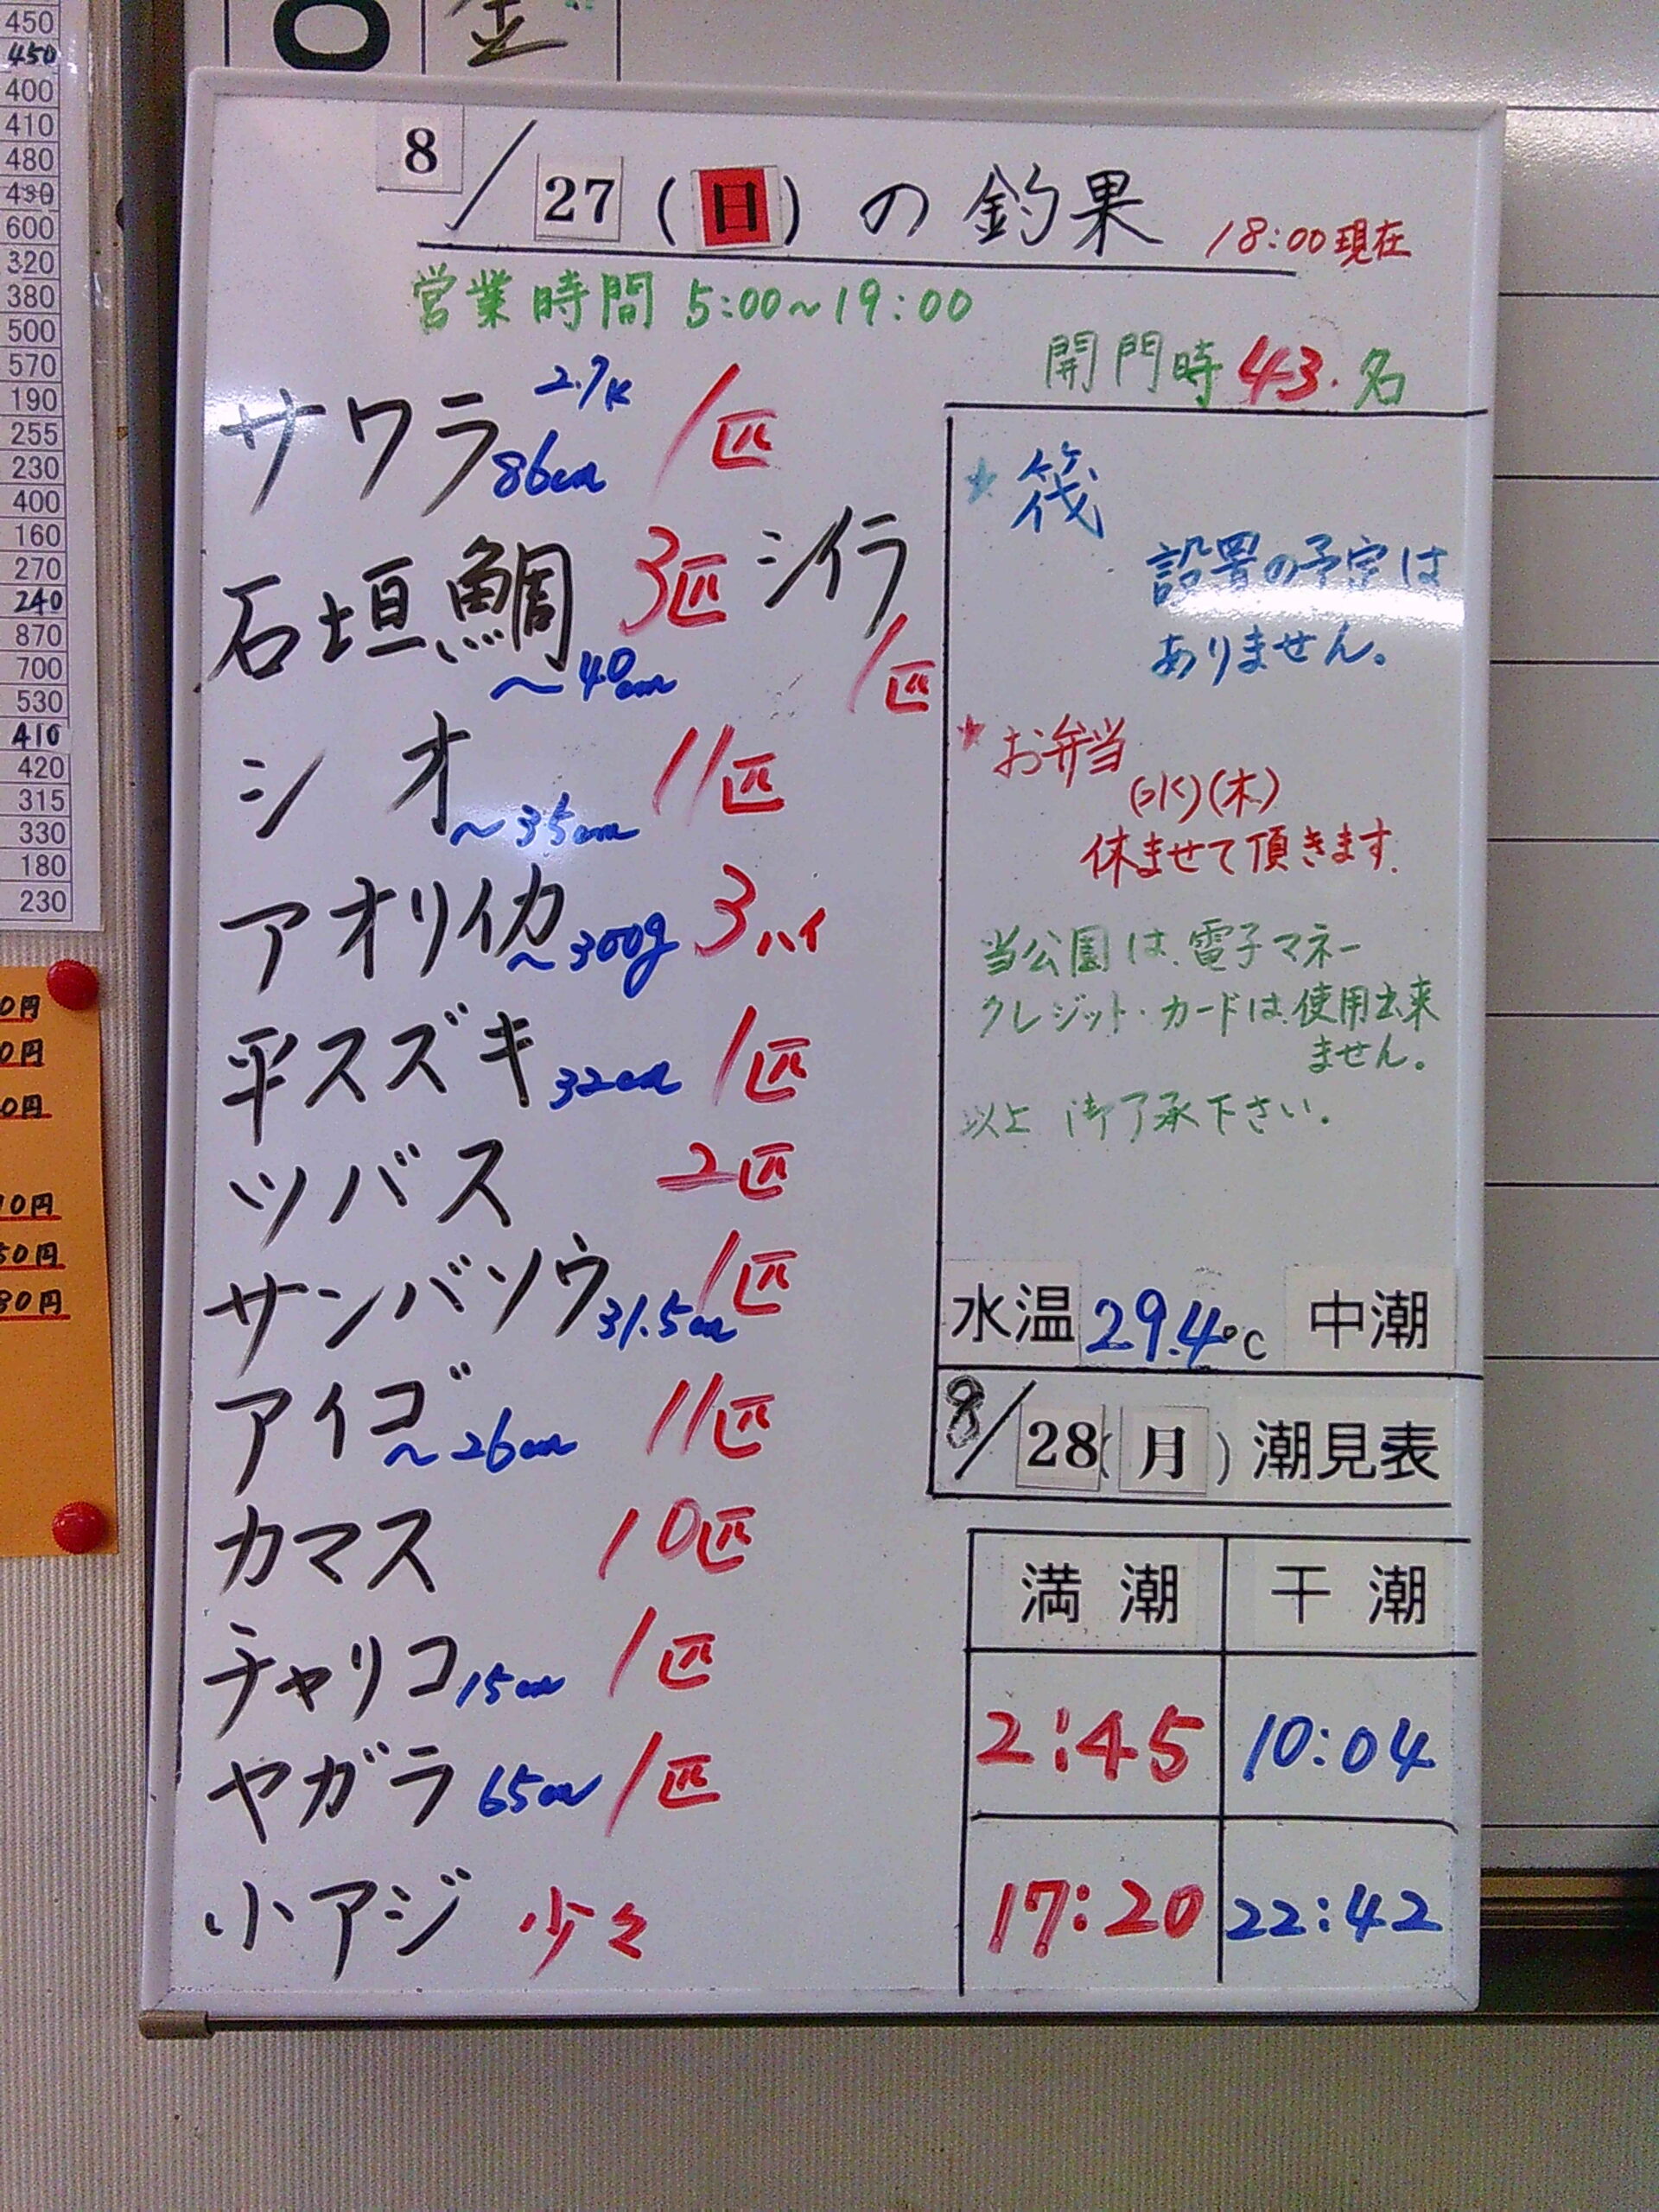 450
450
400
410
480
430
600
320
380
500
570
190
255
230
400
160
270
240
870
700
530
410
420
315
330
180
230
0円
0円
0円
10円
50円
80円
金
8/27(日)の釣果 18:00現在
営業時間 5:00~19:00
開門時 43.名
サワラ 2.7K 86cm 1匹
石垣鯛 ~40cm 3匹
シイラ 1匹
シオ ~35cm 11匹
アオリイカ ~300g 3ハイ
平スズキ 32cm 1匹
ツバス 2匹
サンバソウ 31.5cm 1匹
アイゴ ~26cm 11匹
カマス 10匹
チャリコ 15cm 1匹
ヤガラ 65cm 1匹
小アジ 少々
★筏
設置の予定は
ありません。
★お弁当
(水)(木)
休ませて頂きます.
当公園は、電子マネー
クレジット・カードは、使用出来
ません。
以上 御了承下さい。
水温 29.4℃ 中潮
8/28(月)潮見表
満潮 干潮
2:45 10:04
17:20 22:42